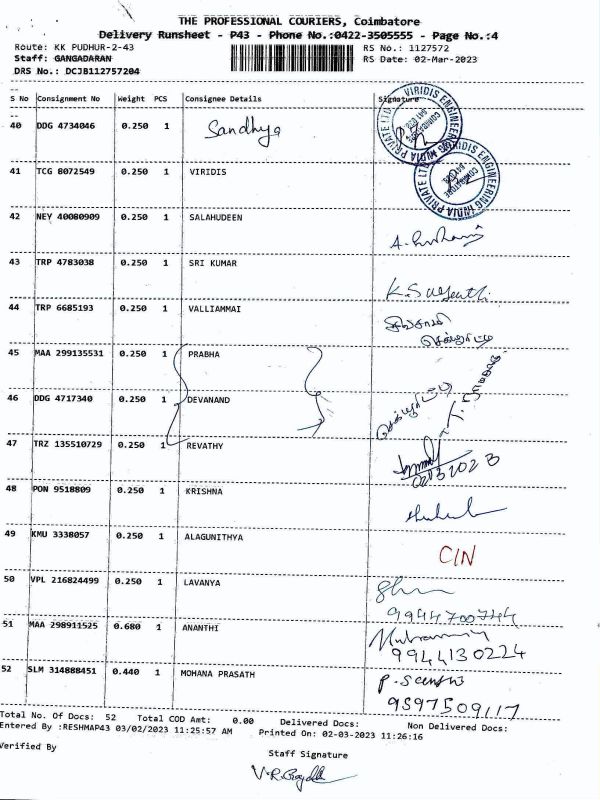 THE PROFESSIONAL COURIERS, Coimbatore
Delivery Runsheet - P43 - Phone No.:0422-3505555 - Page No.:4
Route: KK PUDHUR-2-43 RS No.: 1127572
Staff: GANGADARAN RS Date: 02-Mar-2023
DRS No.: DCJB112757204
S No Consignment No Weight PCS Consignee Details Signature
40 DDG 4734046 0.250 1 Sandhya
VIRIDIS ENGINEERING INDIA PRIVATE LTD COIMBATORE
41 TCG 8072549 0.250 1 VIRIDIS
VIRIDIS ENGINEERING INDIA PRIVATE LTD COIMBATORE
42 NEY 40080909 0.250 1 SALAHUDEEN
43 TRP 4783038 0.250 1 SRI KUMAR
44 TRP 6685193 0.250 1 VALLIAMMAI
45 MAA 299135531 0.250 1 PRABHA
46 DDG 4717340 0.250 1 DEVANAND
47 TRZ 135510729 0.250 1 REVATHY
02032023
48 PON 9518809 0.250 1 KRISHNA
49 KMU 3338057 0.250 1 ALAGUNITHYA CIN
50 VPL 216824499 0.250 1 LAVANYA
9944700744
51 MAA 298911525 0.680 1 ANANTHI
9944130224
52 SLM 314888451 0.440 1 MOHANA PRASATH
9597509117
Total No. Of Docs: 52 Total COD Amt: 0.00 Delivered Docs: Non Delivered Docs:
Entered By :RESHMAP43 03/02/2023 11:25:57 AM Printed On: 02-03-2023 11:26:16
Verified By
Staff Signature